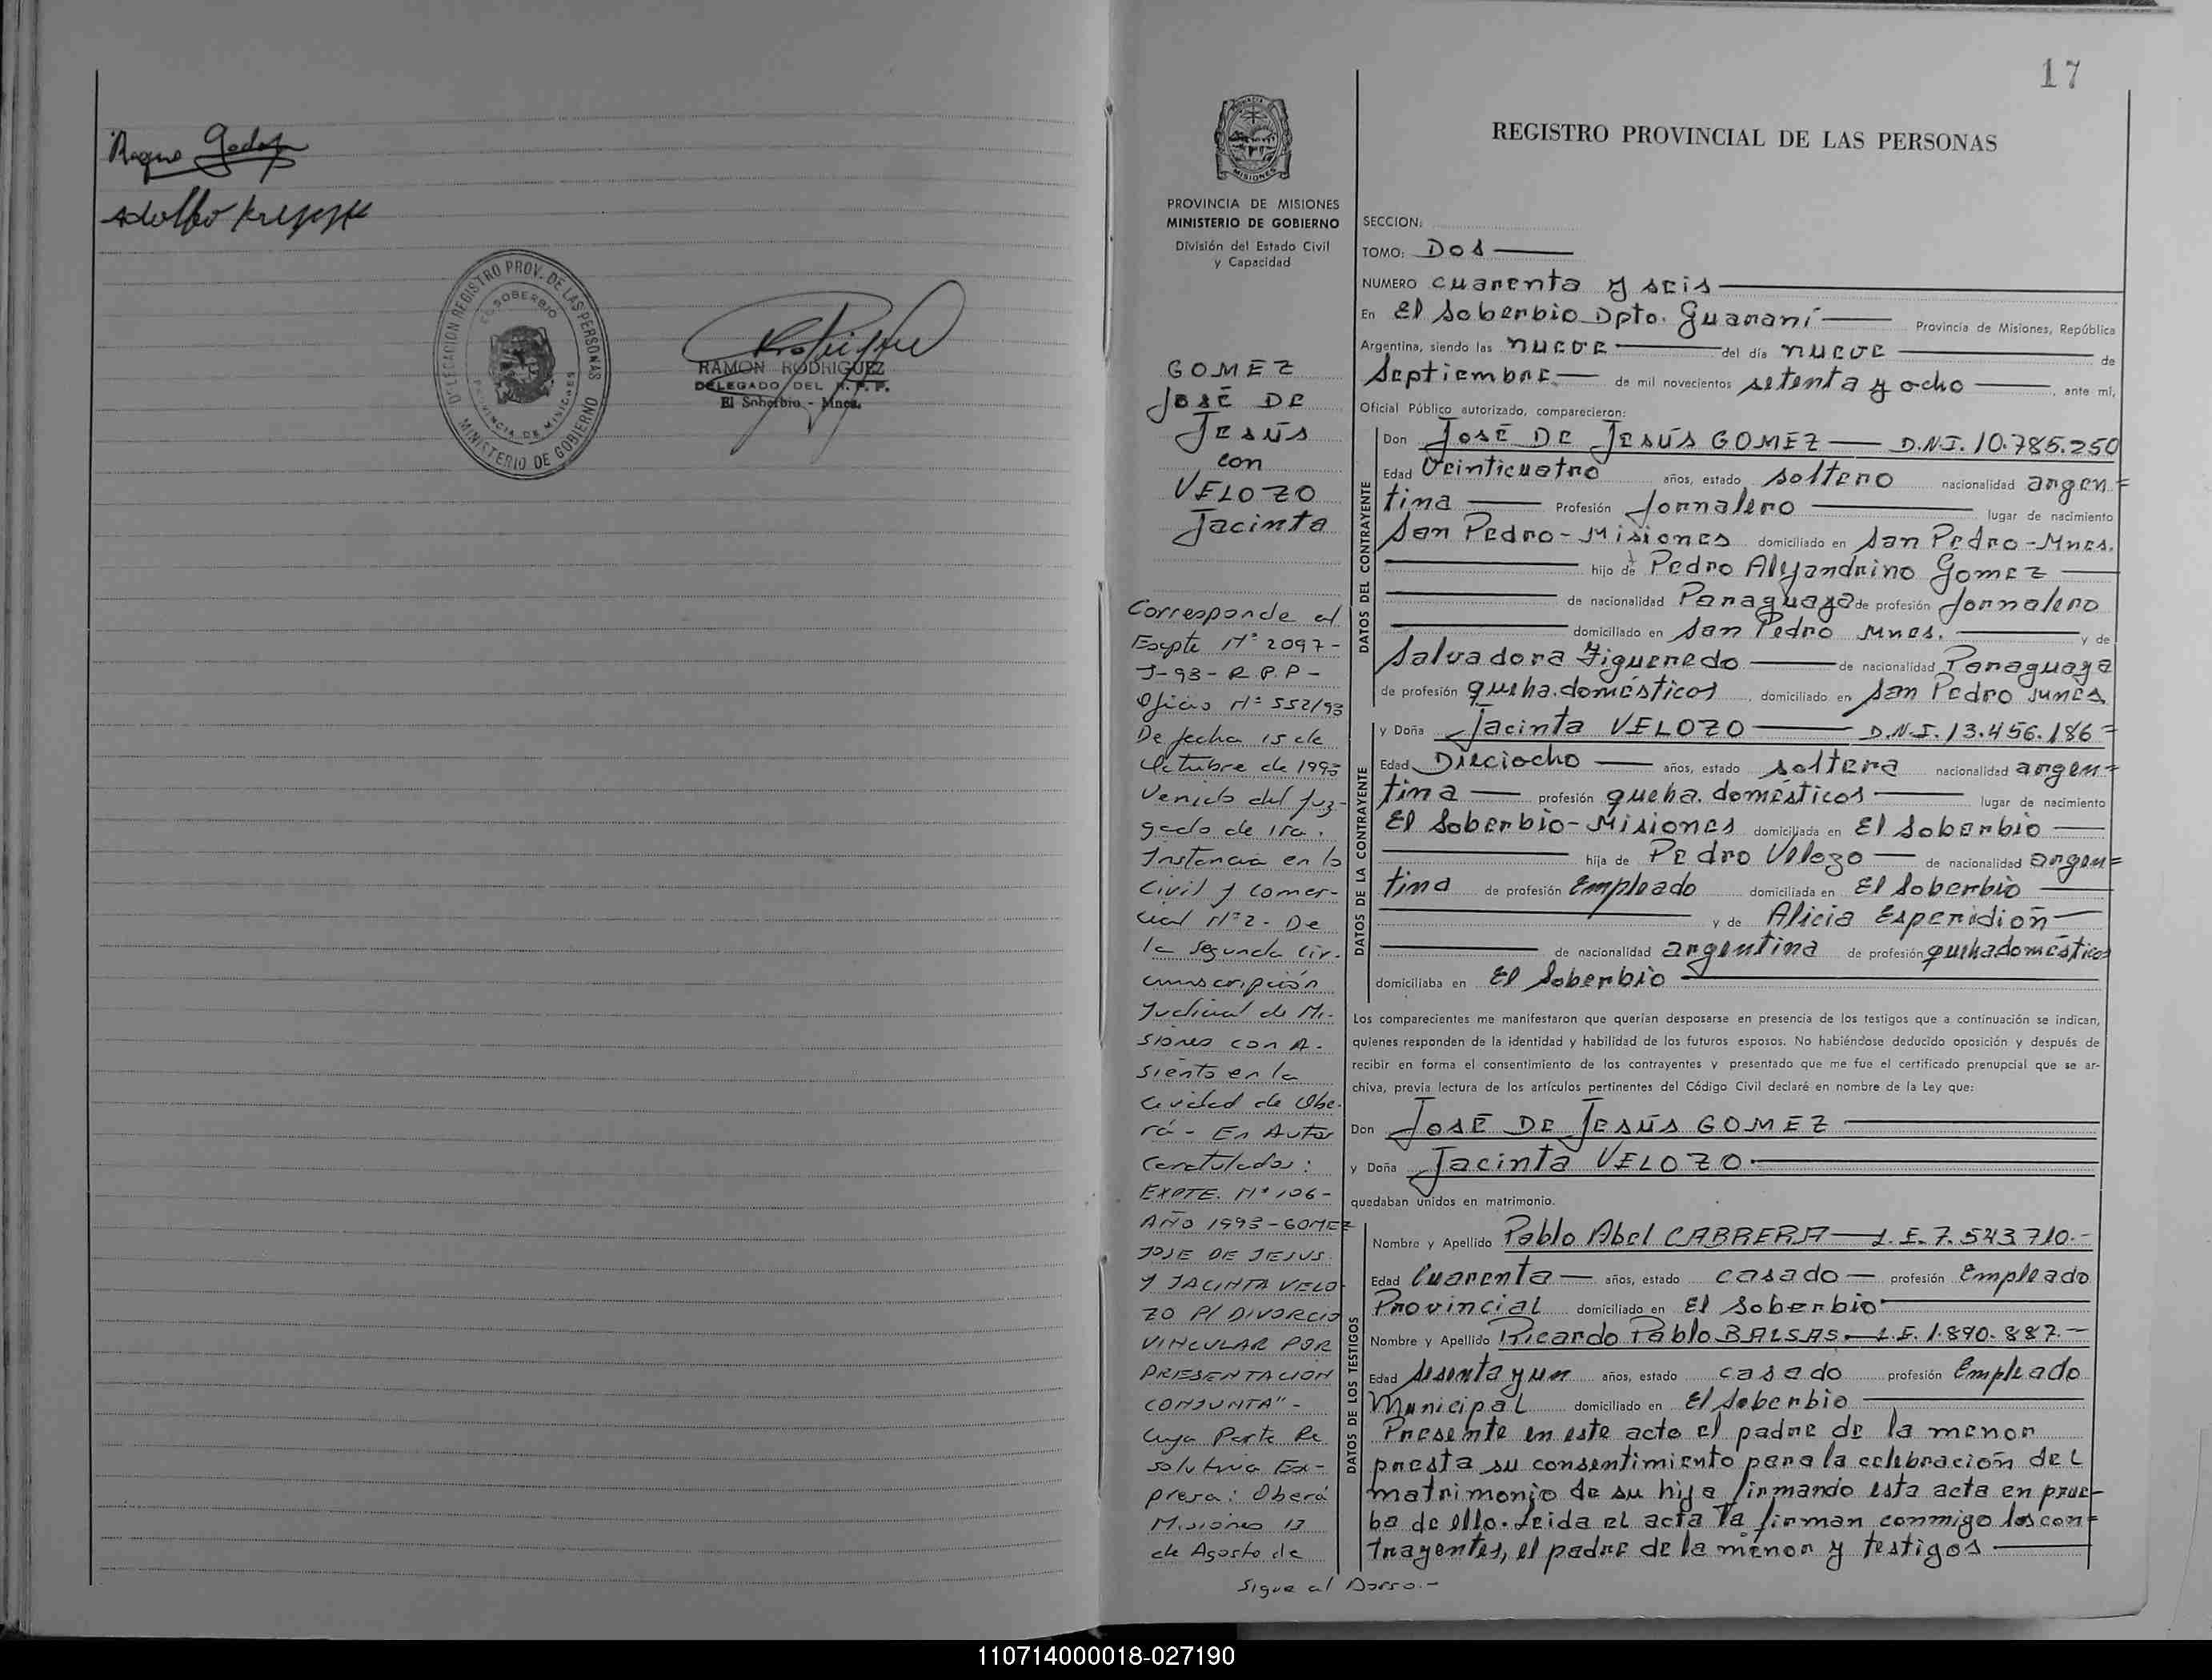 Roque Godoy
Adolfo
DELEGACION REGISTRO PROV. DE LAS PERSONAS
EL SOBERBIO
PROVINCIA DE MISIONES
MINISTERIO DE GOBIERNO
RAMON RODRIGUEZ
DELEGADO DEL R. P. P.
El Soberbio - Mnes.
17
MISIONES
PROVINCIA DE MISIONES
MINISTERIO DE GOBIERNO
División del Estado Civil
y Capacidad
GOMEZ
José De
Jesús
con
VELOZO
Jacinta
Corresponde al
Expte Nº 2097-
J-93- R.P.P-
Oficio Nº 552/93
De fecha 15 de
Octubre de 1993
Venido del Juz-
gado de 1ra.
Instancia en lo
Civil y Comer-
cial Nº2- De
la Segunda Cir-
cunscripción
Judicial de Mi-
siones con A-
siento en la
Ciudad de Obe-
rá - En Autos
Caratulados:
EXPTE. Nº 106-
AÑO 1993-GOMEZ
JOSE DE JESUS
Y JACINTA VELO-
ZO P/ DIVORCIO
VINCULAR POR
PRESENTACION
CONJUNTA"-
Cuya Parte Re
solutiva Ex-
presa: Oberá
Misiones 17
de Agosto de
Sigue al Dorso.-
REGISTRO PROVINCIAL DE LAS PERSONAS
SECCION:
TOMO: Dos
NUMERO cuarenta y seis
En El Soberbio Dpto. Guaraní Provincia de Misiones, República
Argentina, siendo las nueve del día nueve de
Septiembre de mil novecientos setenta y ocho, ante mí,
Oficial Público autorizado, comparecieron:
DATOS DEL CONTRAYENTE
Don José De Jesús GOMEZ — D.N.I. 10.785.250
Edad Veinticuatro años, estado soltero nacionalidad argen=
tina Profesión Jornalero lugar de nacimiento
San Pedro-Misiones domiciliado en San Pedro-Mnes.
hijo de Pedro Alejandrino Gomez
de nacionalidad Paraguaya de profesión Jornalero
domiciliado en San Pedro Mnes. y de
Salvadora Figueredo de nacionalidad Paraguaya
de profesión queha.domésticos, domiciliado en San Pedro Mnes
DATOS DE LA CONTRAYENTE
y Doña Jacinta VELOZO — D.N.I. 13.456.186=
Edad Dieciocho años, estado soltera nacionalidad argen=
tina profesión queha. domésticos lugar de nacimiento
El Soberbio-Misiones domiciliada en El Soberbio
hija de Pedro Velozo de nacionalidad argen=
tina de profesión Empleado domiciliada en El Soberbio
y de Alicia Esperidión
de nacionalidad argentina de profesión quehadomésticos
domiciliaba en El Soberbio
Los comparecientes me manifestaron que querían desposarse en presencia de los testigos que a continuación se indican,
quienes responden de la identidad y habilidad de los futuros esposos. No habiéndose deducido oposición y después de
recibir en forma el consentimiento de los contrayentes y presentado que me fue el certificado prenupcial que se ar-
chiva, previa lectura de los artículos pertinentes del Código Civil declaré en nombre de la Ley que:
Don José De Jesús GOMEZ
y Doña Jacinta VELOZO.
quedaban unidos en matrimonio.
DATOS DE LOS TESTIGOS
Nombre y Apellido Pablo Abel CABRERA — L.E. 7.543.710.-
Edad Cuarenta años, estado casado profesión Empleado
Provincial domiciliado en El Soberbio
Nombre y Apellido Ricardo Pablo BALSAS. L.E. 1.890.887.-
Edad sesenta y un años, estado casado profesión Empleado
Municipal domiciliado en El Soberbio
Presente en este acto el padre de la menor
presta su consentimiento para la celebración del
matrimonio de su hija firmando esta acta en prue-
ba de ello. Leida el acta la firman conmigo los con=
trayentes, el padre de la menor y testigos
110714000018-027190